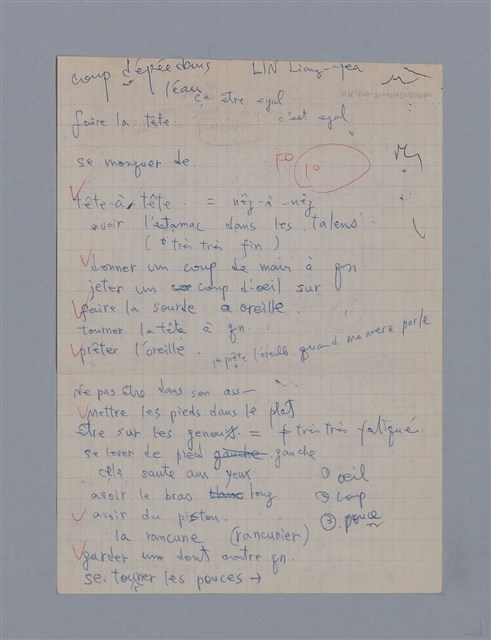 coup d'épée dans l'eau
LIN Liang-yea
ça être egal
c'est egal
faire la tête
se monquer de
F° 1°
tête-à-tête = nez-à-nez
avoir l'estamac dans les talens
(* très très fin.)
donner un coup de main à qn.
jeter un coup d'oeil sur
faire la sourde oreille
tourner la tête à qn.
prêter l'oreille.
je prête l'oreille quand ma mère parle
Ne pas être dans son ass—
mettre les pieds dans le plat
être sur les genoux = très très fatigué
se lever de pied gauche gauche
cela saute aux yeux
avoir le bras long
avoir du piston.
la rancune (rancunier)
garder une dent contre qn.
se tourner les pouces →
① œil
② coup
③ pouce